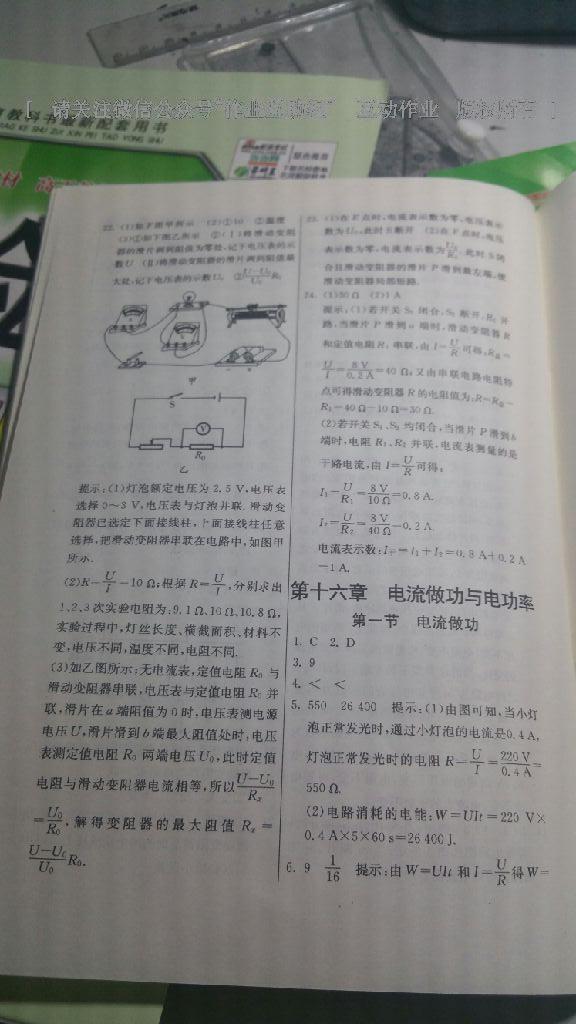 请关注微信公众号"作业互助组" 互动作业 版权所有
教科书最新配套用书
22. (1)如下图甲所示 (2)①10 ②温度
(3)①如下图乙所示 ②(Ⅰ)将滑动变阻
器的滑片调到阻值为零处,记下电压表的示
数U (Ⅱ)将滑动变阻器的滑片调到阻值最
大处,记下电压表的示数U₀ ③(U-U₀)/U₀ R₀
甲
S
V
R₀
乙
提示:(1)灯泡额定电压为 2.5 V,电压表
选择 0~3 V,电压表与灯泡并联.滑动变
阻器已选定下面接线柱,上面接线柱任意
选择,把滑动变阻器串联在电路中,如图甲
所示.
(2)R=U/I=10 Ω;根据 R=U/I,分别求出
1、2、3 次实验电阻为:9.1 Ω、10 Ω、10.8 Ω,
实验过程中,灯丝长度、横截面积、材料不
变,电压不同,温度不同,电阻不同.
(3)如乙图所示:无电流表,定值电阻 R₀ 与
滑动变阻器串联,电压表与定值电阻 R₀ 并
联,滑片在 a 端阻值为 0 时,电压表测电源
电压 U,滑片滑到 b 端最大阻值处时,电压
表测定值电阻 R₀ 两端电压 U₀,此时定值
电阻与滑动变阻器电流相等,所以 (U-U₀)/Rₓ
=U₀/R₀,解得变阻器的最大阻值 Rₓ=
(U-U₀)/U₀ R₀.
23. (1)在 E 点时,电流表示数为零,电压表示
数为U₀,此时 S 断开 (2)在 F 点时,电压
表示数为零,电流表示数为 U₀/R₁,此时 S 闭
合且滑动变阻器的滑片 P 滑到最左端,使
滑动变阻器局部短路.
24. (1)30 Ω (2)1 A
提示:(1)若开关 S₁ 闭合,S₂ 断开,R₂ 开
路,当滑片 P 滑到 a 端时,滑动变阻器 R
和定值电阻 R₁ 串联,由 I=U/R 可得,R总=
U/I=8 V/0.2 A=40 Ω;又由串联电路电阻特
点可得滑动变阻器 R 的电阻值为:R=R总-
R₁=40 Ω-10 Ω=30 Ω.
(2)若开关 S₁、S₂ 均闭合,当滑片 P 滑到 b
端时,电阻 R₁、R₂ 并联,电流表测量的是
干路电流,由 I=U/R 可得:
I₁=U/R₁=8 V/10 Ω=0.8 A.
I₂=U/R₂=8 V/40 Ω=0.2 A.
电流表示数:I干=I₁+I₂=0.8 A+0.2 A
=1 A.
第十六章 电流做功与电功率
第一节 电流做功
1. C 2. D
3. 9
4. < <
5. 550 26 400 提示:(1)由图可知,当小灯
泡正常发光时,通过小灯泡的电流是 0.4 A,
灯泡正常发光时的电阻 R=U/I=220 V/0.4 A=
550 Ω.
(2)电路消耗的电能:W=UIt=220 V×
0.4 A×5×60 s=26 400 J.
6. 9 1/16 提示:由 W=UIt 和 I=U/R 得 W=